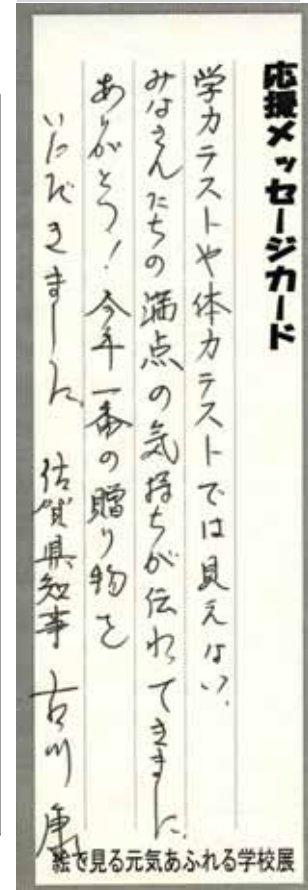 応援メッセージカード
学力テストや体力テストでは見えない、
みなさんたちの満点の気持ちが伝わってきました。
ありがとう！今年一番の贈り物を
いただきました。 佐賀県知事 古川 康
絵で見る元気あふれる学校展